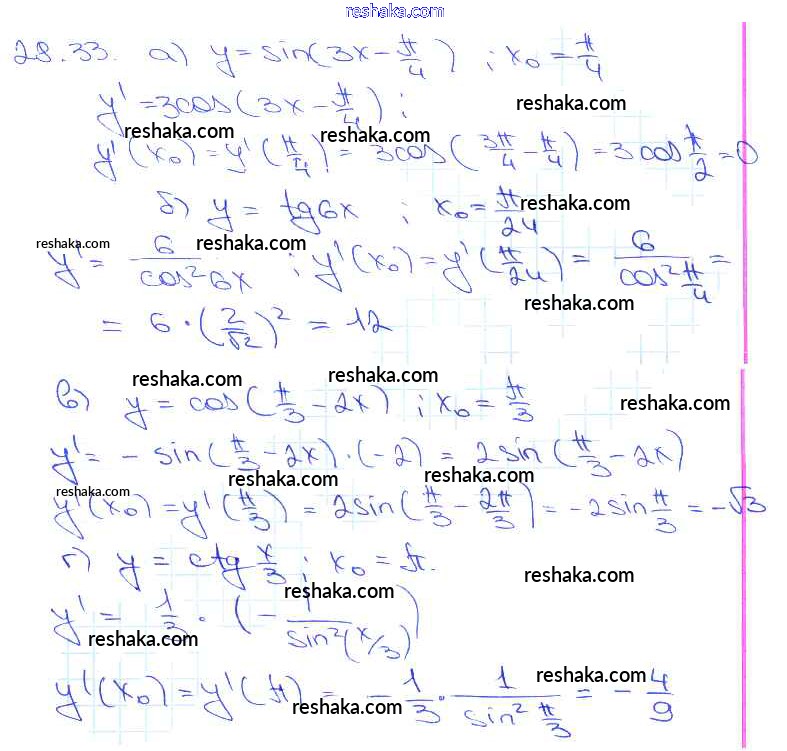 reshaka.com
28.33. а) y = sin(3x - π/4) ; x₀ = π/4
y' = 3cos(3x - π/4) ; reshaka.com
reshaka.com reshaka.com
y'(x₀) = y'(π/4) = 3cos(3π/4 - π/4) = 3cos π/2 = 0
б) y = tg6x ; x₀ = π/24 reshaka.com
reshaka.com reshaka.com
y' = 6/cos²6x ; y'(x₀) = y'(π/24) = 6/cos² π/4 =
reshaka.com
= 6 · (2/√2)² = 12
reshaka.com reshaka.com
в) y = cos(π/3 - 2x) ; x₀ = π/3 reshaka.com
y' = - sin(π/3 - 2x) · (-2) = 2sin(π/3 - 2x)
reshaka.com reshaka.com reshaka.com
y'(x₀) = y'(π/3) = 2sin(π/3 - 2π/3) = -2sin π/3 = -√3
г) y = ctg x/3 ; x₀ = π. reshaka.com
reshaka.com
y' = 1/3 · (- 1/sin²(x/3))
reshaka.com
reshaka.com
y'(x₀) = y'(π) = - 1/3 · 1/sin² π/3 = - 4/9
reshaka.com